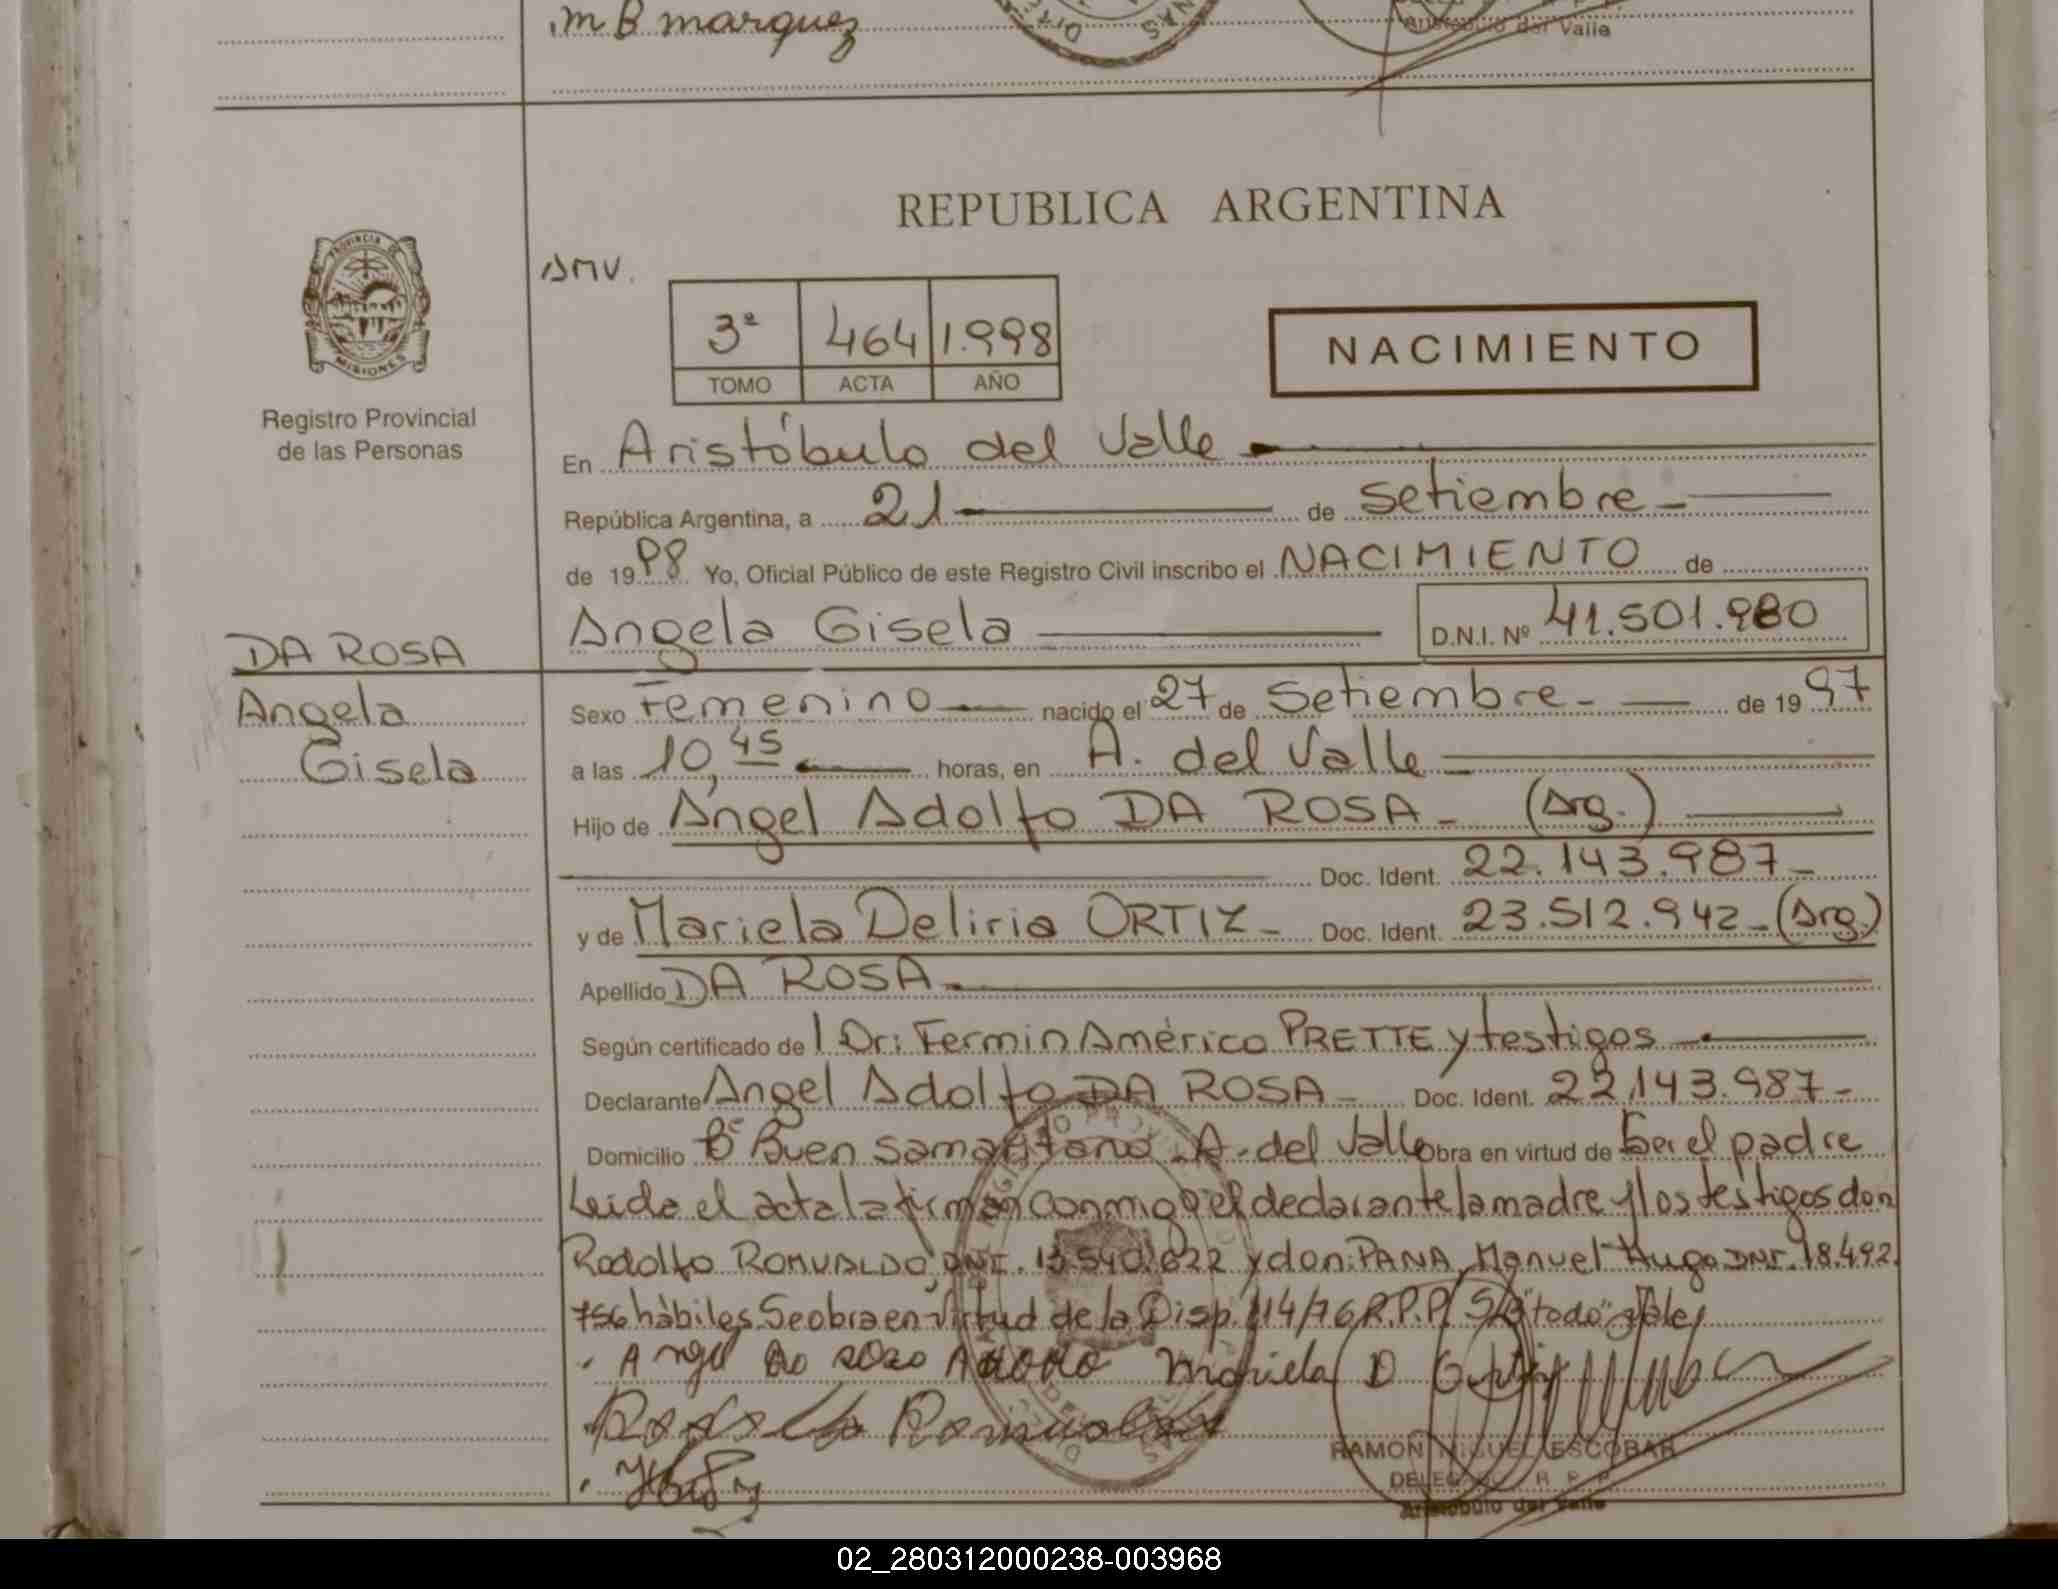 m B marquez
Aristóbulo del Valle
REPUBLICA ARGENTINA
PROVINCIA DE
MISIONES
Registro Provincial
de las Personas
AMV.
3ª 464 1.998
TOMO ACTA AÑO
NACIMIENTO
En Aristóbulo del Valle
República Argentina, a 21 de Setiembre
de 1998 Yo, Oficial Público de este Registro Civil inscribo el NACIMIENTO de
Angela Gisela D.N.I. Nº 41.501.980
DA ROSA
Angela
Gisela
Sexo Femenino nacido el 27 de Setiembre de 1997
a las 10,45 horas, en A. del Valle
Hijo de Angel Adolfo DA ROSA - (Arg.)
Doc. Ident. 22.143.987-
y de Mariela Deliria ORTIZ - Doc. Ident. 23.512.942-(Arg.)
Apellido DA ROSA
Según certificado de l Dr: Fermin Américo PRETTE y testigos
Declarante Angel Adolfo DA ROSA - Doc. Ident. 22.143.987-
Domicilio Bº Buen samaritano - A. del Valle obra en virtud de Ser el padre
Leida el acta la firman conmigo el declarante la madre y los testigos don
Rodolfo ROMUALDO, DNI. 13.540.622 y don: PANA, Manuel Hugo DNI. 18.492.
756 hábiles. Se obra en virtud de la Disp. 114/76 R.P.P. S/B "todo" vale
Angel Da Rosa Adolfo Mariela D Ortiz
Rodolfo Romualdo
RAMON MIGUEL ESCOBAR
DELEGADO R. P. P.
Aristóbulo del Valle
02_280312000238-003968